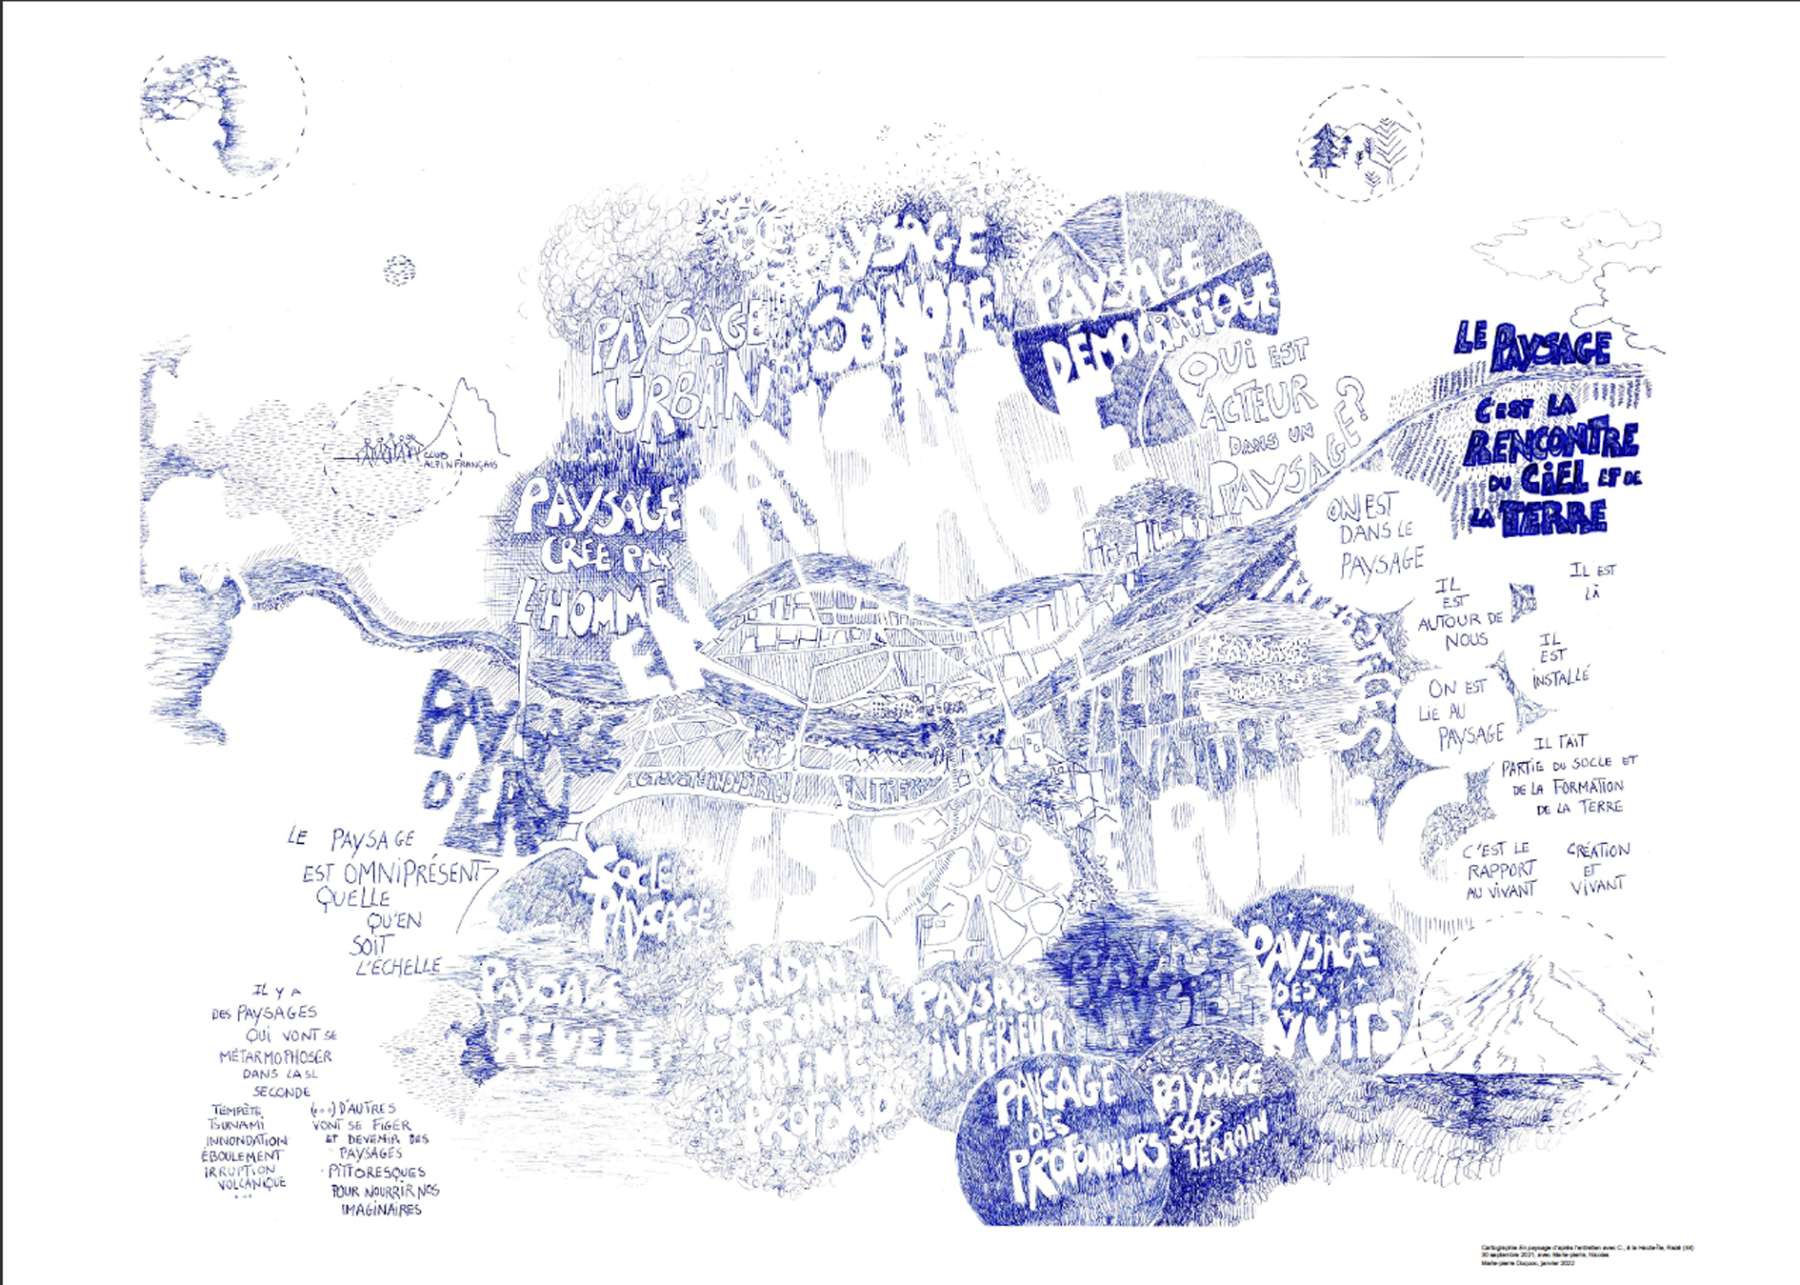 PAYSAGE
SONORE
PAYSAGE
URBAIN
PAYSAGE
DÉMOCRATIQUE
QUI EST
ACTEUR
DANS UN
PAYSAGE?
LE PAYSAGE
C'EST LA
RENCONTRE
DU CIEL ET DE
LA TERRE
CLUB
ALPIN FRANÇAIS
PAYSAGE
CRÉE PAR
L'HOMME
ON EST
DANS LE
PAYSAGE
IL
EST
AUTOUR DE
NOUS
IL EST
LÀ
IL
EST
INSTALLÉ
ON EST
LIE AU
PAYSAGE
IL FAIT
PARTIE DU SOCLE ET
DE LA FORMATION
DE LA TERRE
C'EST LE
RAPPORT
AU VIVANT
CRÉATION
ET
VIVANT
INTERSTICES
VILLE
NATURE
EN
PAYSAGE
D'EAU
LE PAYSAGE
EST OMNIPRÉSENT
QUELLE
QU'EN
SOIT
L'ÉCHELLE
SOCLE
PAYSAGE
PAYSAGE
RÉVÉLÉ
JARDIN
PERSONNEL
INTIME
ET PROFOND
PAYSAGE
INTÉRIEUR
PAYSAGE
PAYSAGE
DES
NUITS
PAYSAGE
DES
PROFONDEURS
PAYSAGE
SOUS
TERRAIN
IL Y A
DES PAYSAGES
QUI VONT SE
MÉTARMOPHOSER
DANS LA SL
SECONDE
TEMPÊTE
TSUNAMI
INNONDATION
ÉBOULEMENT
IRRUPTION
VOLCANIQUE
...
(...) D'AUTRES
VONT SE FIGER
ET DEVENIR DES
PAYSAGES
PITTORESQUES
POUR NOURRIR NOS
IMAGINAIRES
Cartographie En paysage d'après l'entretien avec C., à la Haute-Île, Rezé (44)
30 septembre 2021, avec Marie-pierre, Nicolas
Marie-pierre Duquoc, janvier 2022